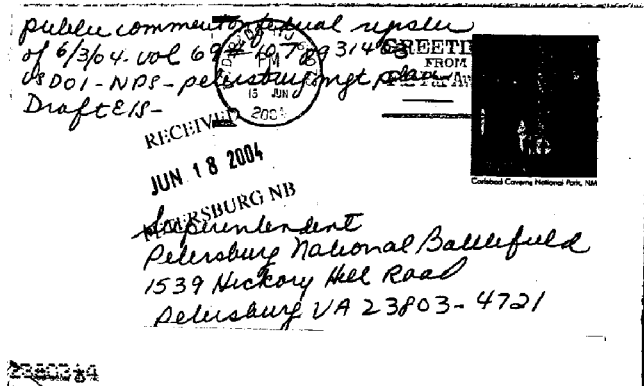 public comment on federal register
of 6/3/04 vol 69 # 107
USDOI-NPS-petersburg mgt plan
Draft EIS-
GREETI
FROM
PM
15 JUN
2004
RECEIVED
JUN 18 2004
PETERSBURG NB
Carlsbad Caverns National Park, NM
Superintendent
Petersburg National Battlefield
1539 Hickory Hill Road
Petersburg VA 23803-4721